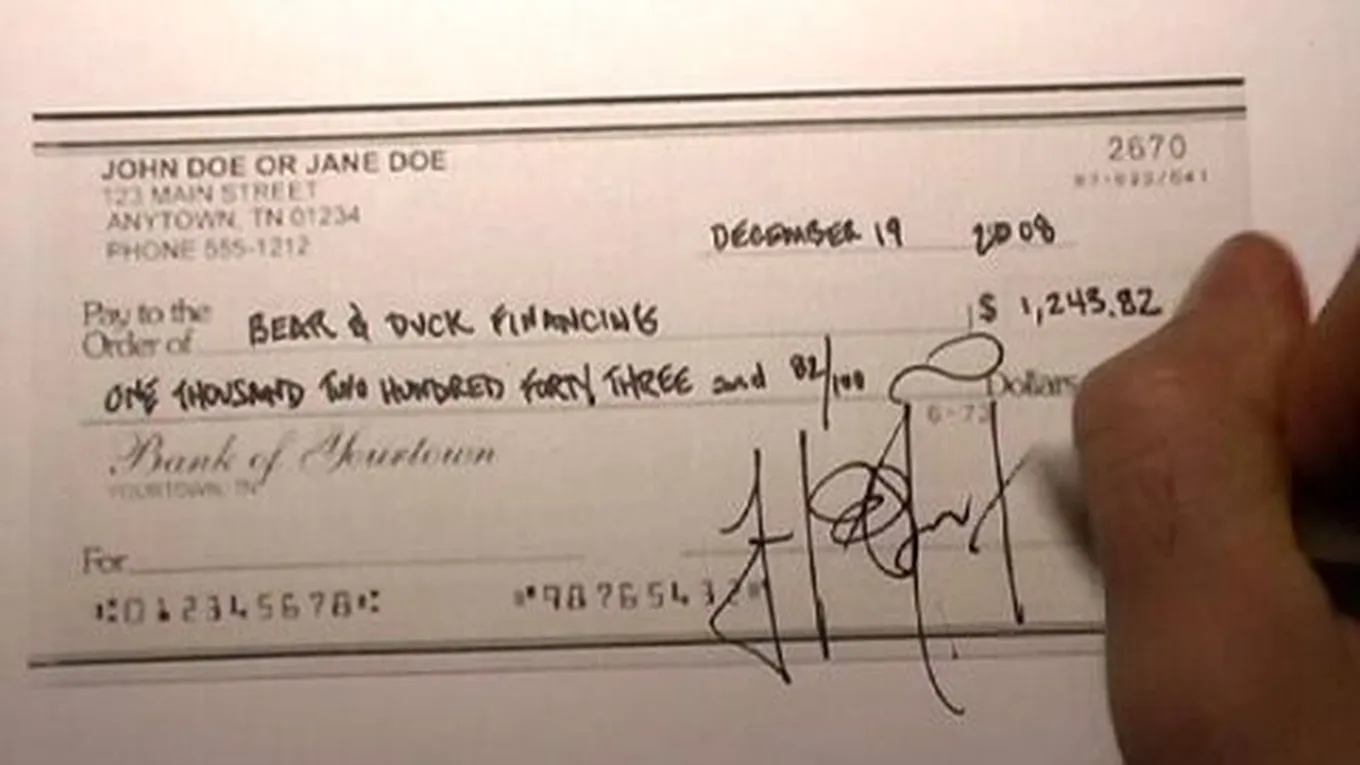 JOHN DOE OR JANE DOE
123 MAIN STREET
ANYTOWN, TN 01234
PHONE 555-1212
2670
DECEMBER 19 2008
Pay to the
Order of BEAR & DUCK FINANCING $ 1,243.82
ONE THOUSAND TWO HUNDRED FORTY THREE and 82/100 Dollars
Bank of Yourtown
YOURTOWN, TN
For
012345678 987654321